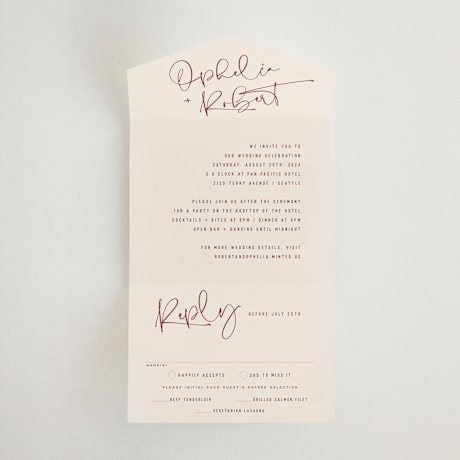 Ophelia
+ Robert
WE INVITE YOU TO
OUR WEDDING CELEBRATION
SATURDAY, AUGUST 28TH, 2024
5 O'CLOCK AT PAN PACIFIC HOTEL
2125 TERRY AVENUE / SEATTLE
PLEASE JOIN US AFTER THE CEREMONY
FOR A PARTY ON THE ROOFTOP OF THE HOTEL
COCKTAILS + BITES AT 6PM / DINNER AT 8PM
OPEN BAR + DANCING UNTIL MIDNIGHT
FOR MORE WEDDING DETAILS, VISIT
ROBERTANDOPHELIA.MINTED.US
Reply BEFORE JULY 25TH
NAME(S)
HAPPILY ACCEPTS SAD TO MISS IT
PLEASE INITIAL EACH GUEST'S ENTRÉE SELECTION
BEEF TENDERLOIN GRILLED SALMON FILET
VEGETARIAN LASAGNA